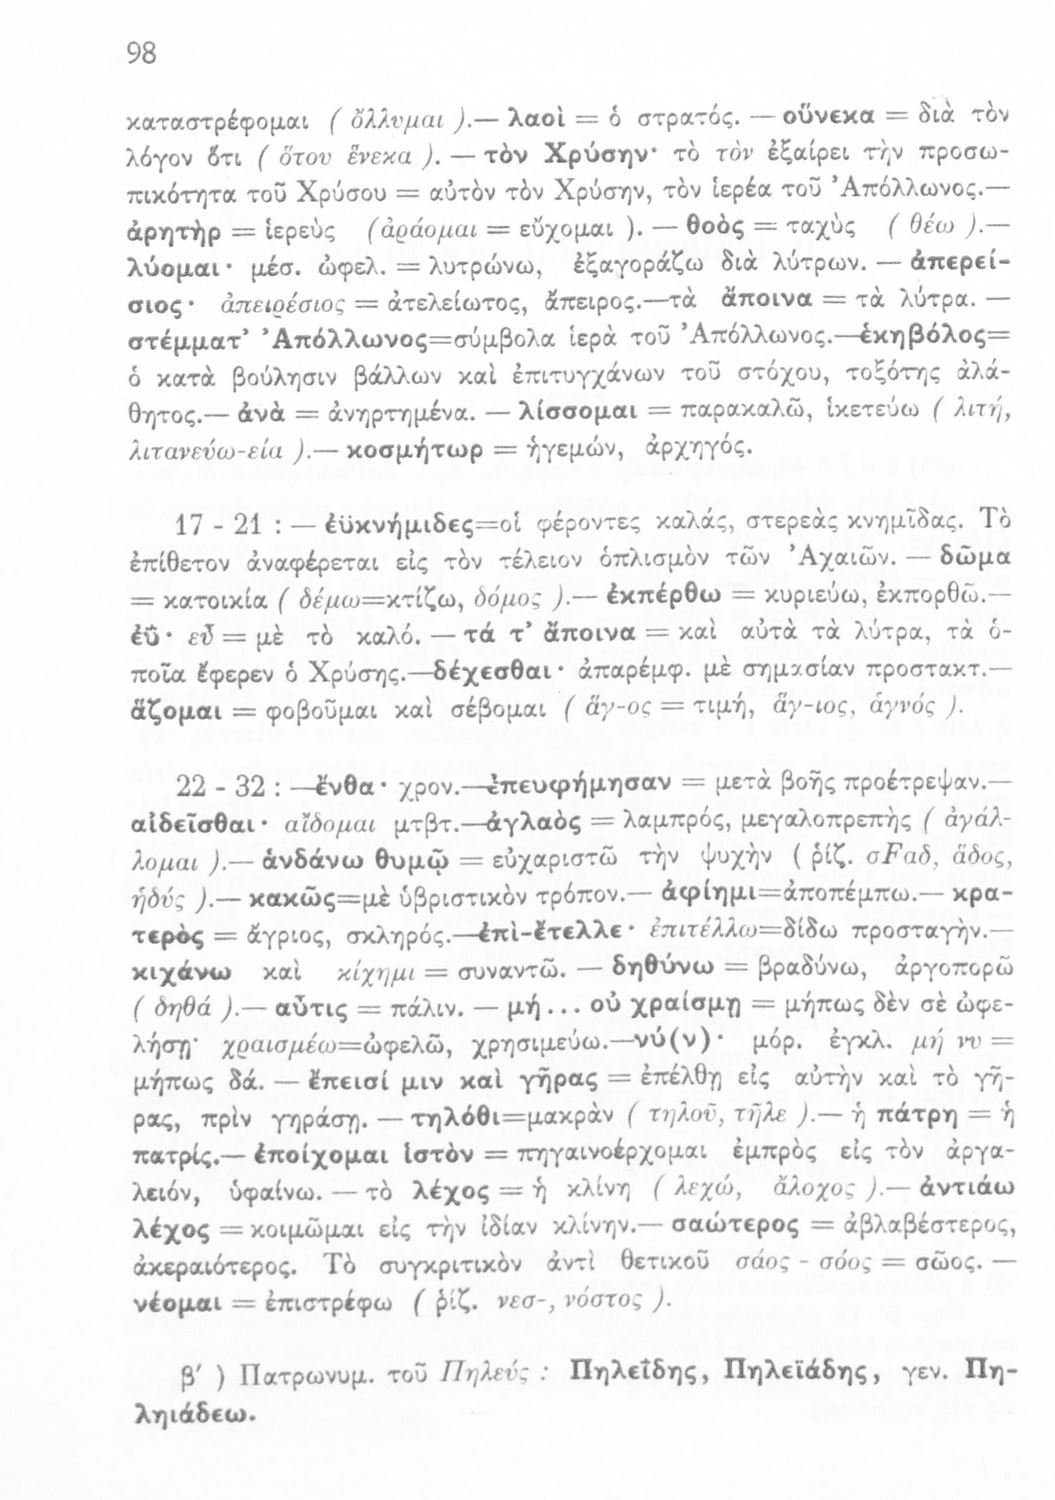 98
καταστρέφομαι ( ὄλλυμαι ).— λαοὶ = ὁ στρατός. — οὕνεκα = διὰ τὸν
λόγον ὅτι ( ὅτου ἕνεκα ). — τὸν Χρύσην· τὸ τὸν ἐξαίρει τὴν προσω-
πικότητα τοῦ Χρύσου = αὐτὸν τὸν Χρύσην, τὸν ἱερέα τοῦ Ἀπόλλωνος.—
ἀρητὴρ = ἱερεὺς (ἀράομαι = εὔχομαι ). — θοὸς = ταχὺς ( θέω ).—
λύομαι· μέσ. ὠφελ. = λυτρώνω, ἐξαγοράζω διὰ λύτρων. — ἀπερεί-
σιος· ἀπειρέσιος = ἀτελείωτος, ἄπειρος.—τὰ ἄποινα = τὰ λύτρα. —
στέμματ' Ἀπόλλωνος=σύμβολα ἱερὰ τοῦ Ἀπόλλωνος.—ἑκηβόλος=
ὁ κατὰ βούλησιν βάλλων καὶ ἐπιτυγχάνων τοῦ στόχου, τοξότης ἀλά-
θητος.— ἀνὰ = ἀνηρτημένα. — λίσσομαι = παρακαλῶ, ἱκετεύω ( λιτή,
λιτανεύω-εία ).— κοσμήτωρ = ἡγεμών, ἀρχηγός.
17 - 21 : — ἐϋκνήμιδες=οἱ φέροντες καλάς, στερεὰς κνημῖδας. Τὸ
ἐπίθετον ἀναφέρεται εἰς τὸν τέλειον ὁπλισμὸν τῶν Ἀχαιῶν. — δῶμα
= κατοικία ( δέμω=κτίζω, δόμος ).— ἐκπέρθω = κυριεύω, ἐκπορθῶ.—
ἐΰ· εὖ = μὲ τὸ καλό. — τά τ' ἄποινα = καὶ αὐτὰ τὰ λύτρα, τὰ ὁ-
ποῖα ἔφερεν ὁ Χρύσης.—δέχεσθαι· ἀπαρέμφ. μὲ σημασίαν προστακτ.—
ἅζομαι = φοβοῦμαι καὶ σέβομαι ( ἅγ-ος = τιμή, ἅγ-ιος, ἁγνός ).
22 - 32 : —ἔνθα· χρον.—ἐπευφήμησαν = μετὰ βοῆς προέτρεψαν.—
αἰδεῖσθαι· αἴδομαι μτβτ.—ἀγλαὸς = λαμπρός, μεγαλοπρεπὴς ( ἀγάλ-
λομαι ).— ἁνδάνω θυμῷ = εὐχαριστῶ τὴν ψυχὴν ( ῥίζ. σFαδ, ἅδος,
ἡδύς ).— κακῶς=μὲ ὑβριστικὸν τρόπον.— ἀφίημι=ἀποπέμπω.— κρα-
τερὸς = ἄγριος, σκληρός.—ἐπὶ-ἔτελλε· ἐπιτέλλω=δίδω προσταγὴν.—
κιχάνω καὶ κίχημι = συναντῶ. — δηθύνω = βραδύνω, ἀργοπορῶ
( δηθά ).— αὖτις = πάλιν. — μή... οὐ χραίσμῃ = μήπως δὲν σὲ ὠφε-
λήσῃ· χραισμέω=ὠφελῶ, χρησιμεύω.—νύ(ν)· μόρ. ἐγκλ. μή νυ =
μήπως δά. — ἔπεισί μιν καὶ γῆρας = ἐπέλθῃ εἰς αὐτὴν καὶ τὸ γῆ-
ρας, πρὶν γηράσῃ. — τηλόθι=μακρὰν ( τηλοῦ, τῆλε ).— ἡ πάτρη = ἡ
πατρίς.— ἐποίχομαι ἱστὸν = πηγαινοέρχομαι ἐμπρὸς εἰς τὸν ἀργα-
λειόν, ὑφαίνω. — τὸ λέχος = ἡ κλίνη ( λεχώ, ἄλοχος ).— ἀντιάω
λέχος = κοιμῶμαι εἰς τὴν ἰδίαν κλίνην.— σαώτερος = ἀβλαβέστερος,
ἀκεραιότερος. Τὸ συγκριτικὸν ἀντὶ θετικοῦ σάος - σόος = σῶος. —
νέομαι = ἐπιστρέφω ( ῥίζ. νεσ-, νόστος ).
β' ) Πατρωνυμ. τοῦ Πηλεύς : Πηλεΐδης, Πηλεϊάδης, γεν. Πη-
ληιάδεω.